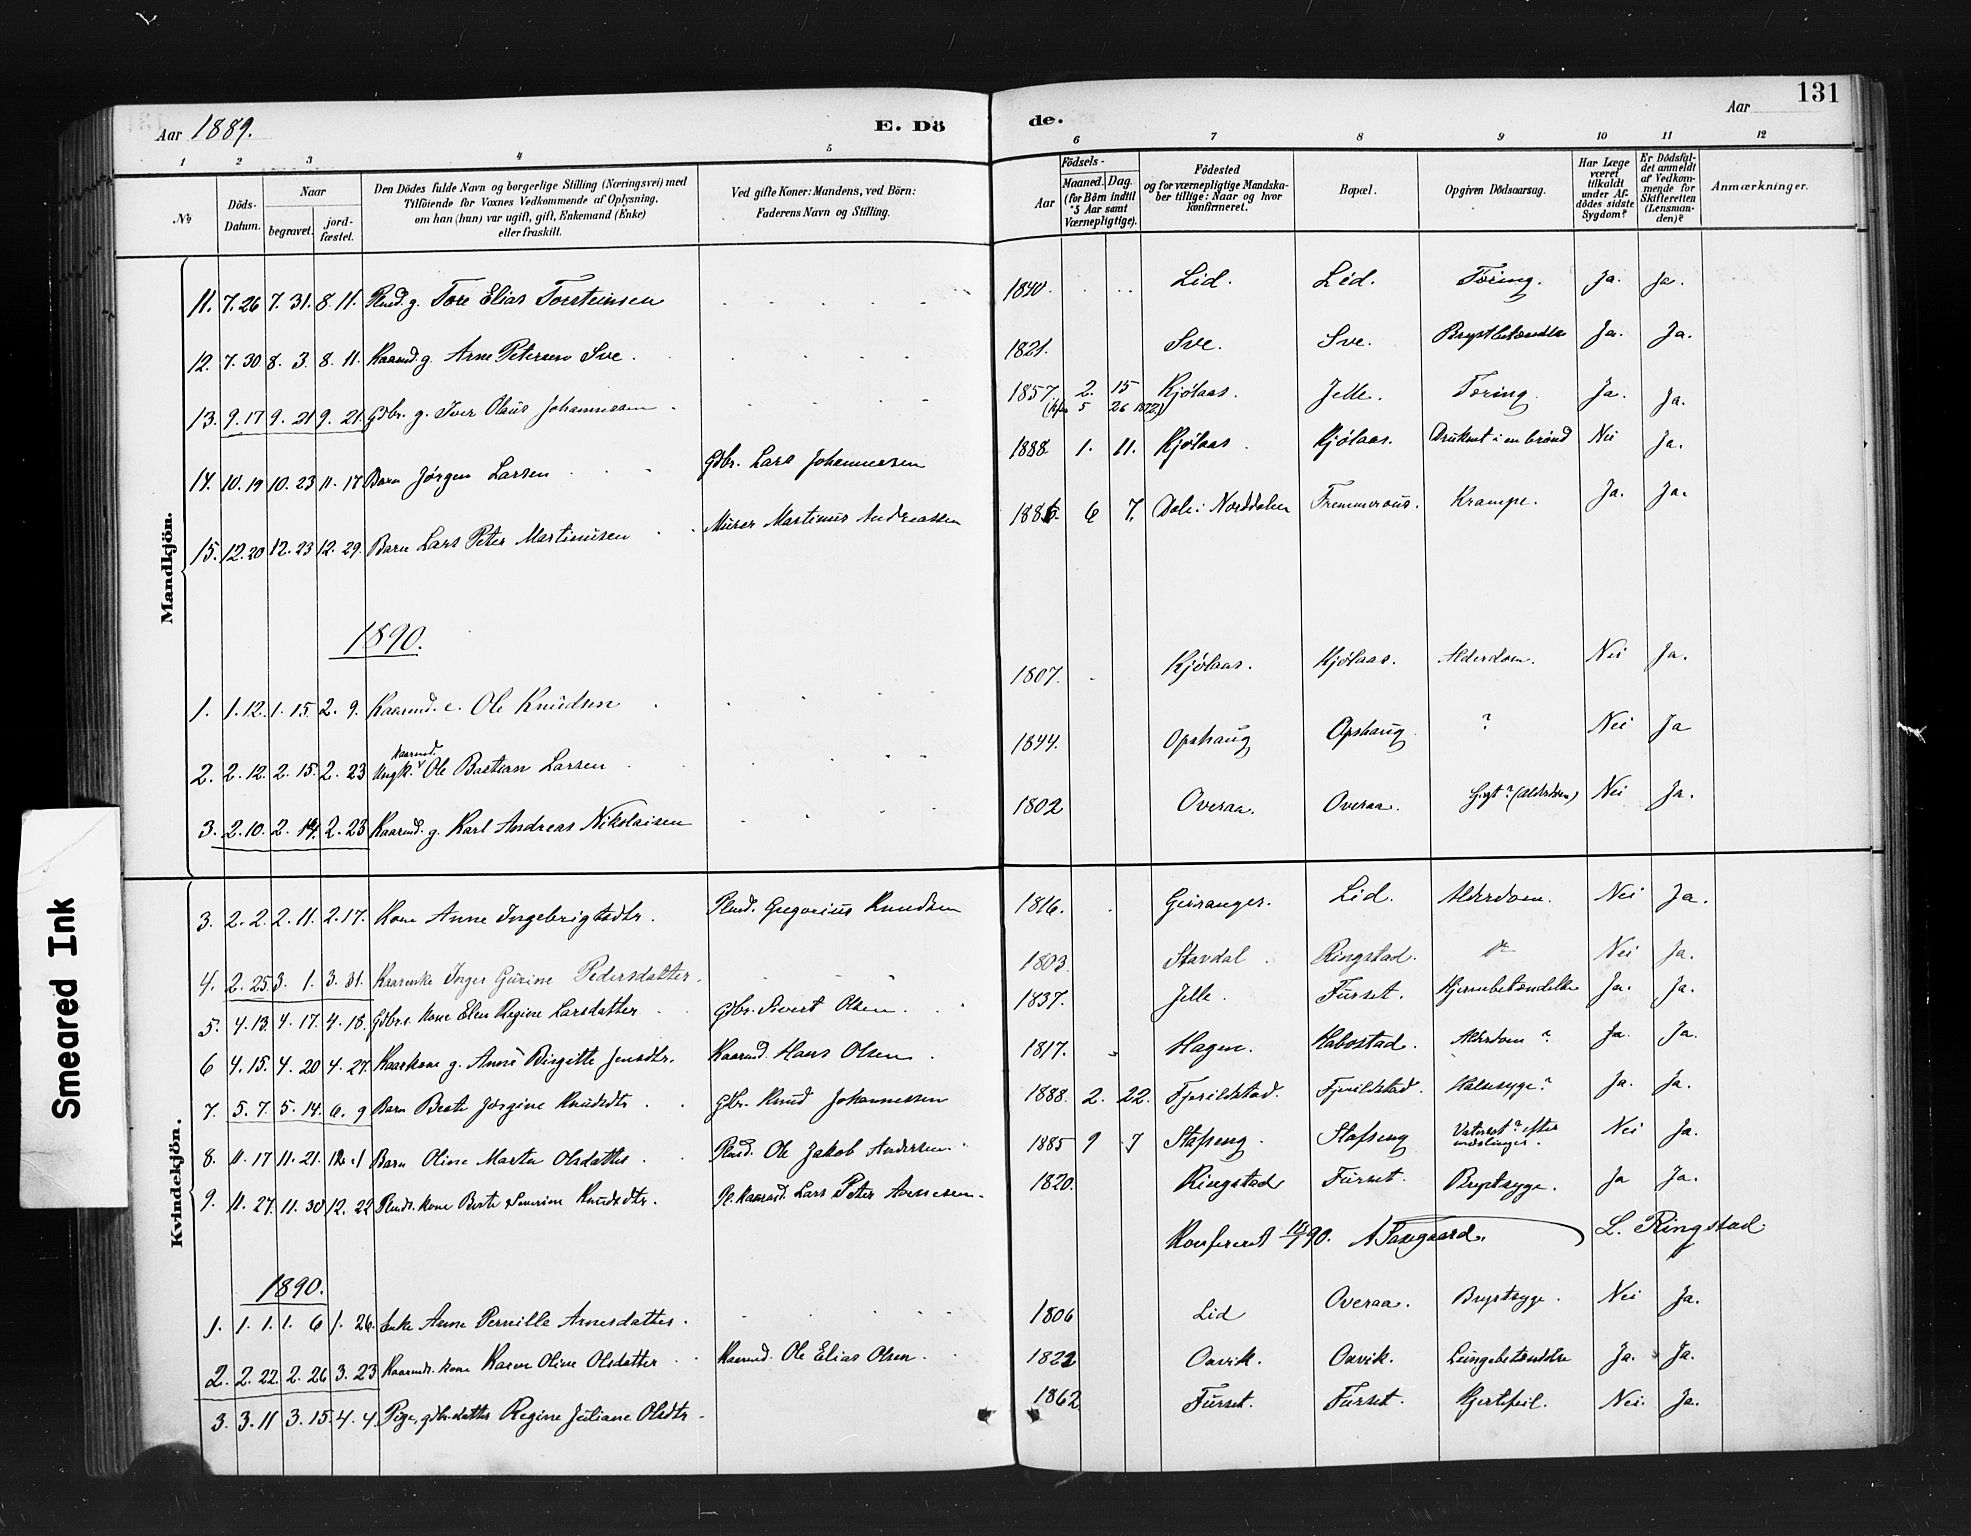 131
Aar 1889. E. Dö de. Aar
1 2 3 4 5 6 7 8 9 10 11 12
No Döds-Datum. Naar begravet. jord-fæstet. Den Dödes fulde Navn og borgerlige Stilling (Næringsvei) med Tilföiende for Voxnes Vedkommende af Oplysning, om han (hun) var ugift, gift, Enkemand (Enke) eller fraskilt. Ved gifte Koner: Mandens, ved Börn: Faderens Navn og Stilling. Födsels- Aar Maaned. Dag. (for Börn indtil 5 Aar samt Værnepligtige). Födested og for værnepligtige Mandskaber tillige: Naar og hvor konfirmeret. Bopæl. Opgiven Dödsaarsag. Har Læge været tilkaldt under Afdödes sidste Sygdom? Er Dödsfaldet anmeldt af Vedkommende for Skifteretten (Lensmanden)? Anmærkninger.
Mandkjön.
11. 7. 26 7. 31. 8. 11. Plud. g. Tore Elias Torsteinsen 1840. Lid. Lid. Tæring. Ja. Ja.
12. 7. 30 8. 3. 8. 11. Kaarmd. g. Arne Petersen Sve. 1821. Sve. Sve. Brystbetændelse Ja. Ja.
13. 9. 17 9. 21 9. 21. Gdbr. g. Iver Olaus Johannessen 1857. 2. 15 Kjølaas. Jelle. Tæring. Ja. Ja.
5 26 1872)
14. 10. 19 10. 23 11. 17 Barn Jørgen Larsen Gdbr. Lars Johannessen 1888 1. 11. Kjølaas. Kjølaas. Druknet i en brønd Nei Ja.
15. 12. 20 12. 23 12. 29. Barn Lars Peter Martinusen Murer Martinus Andreassen 1886. 6 7. Dale i Norddalen Fremmeraas. Krampe. Ja. Ja.
1890.
1. 1. 12. 1. 15. 2. 9. Kaarmd. e. Ole Knudsen 1807. Kjølaas. Kjølaas. Alderdom. Nei Ja.
2. 2. 12. 2. 15. 2. 23 Ungk. Kaarmd. Ole Bastian Larsen 1844. Opshaug Opshaug. ? Nei Ja
3. 2. 10. 2. 14. 2. 23 Kaarmd. g. Karl Andreas Nikolaisen 1802 Overaa. Overaa. Gigt? (Alderdom) Nei Ja.
Kvindekjön.
3. 2. 2. 2. 11. 2. 17. Kone Anne Ingebrigtsdtr. Plmd. Gregorius Knudsen 1816. Geiranger. Lid. Alderdom. Nei Ja.
4. 2. 25. 3. 1. 3. 31. Kaarenke Inger Gurine Pedersdatter. 1803. Stavdal. Ringstad. Nei Ja.
5. 4. 13. 4. 17. 4. 18. Gdbrs kone Elen Regine Larsdatter Gdbr. Sivert Olsen. 1837. Jelle. Furset. Hjernebetændelse Ja. Ja.
6 4. 15. 4. 20 4. 27. Kaarkone g. Anne Birgitte Jensdtr. Kaarmd. Hans Olsen 1817. Hagen. Habostad. Alderdom? Ja. Ja.
7. 5. 7. 5. 14. 6. 9 Barn Berte Jørgine Knudsdtr Gdbr. Knud Johannessen 1888. 2. 22. Fjørildstad. Fjørildstad. Halssyge? Ja. Ja.
8. 11. 17 11. 21. 12. 1 Barn Oline Marta Olsdatter Plmd. Ole Jakob Andersen 1885 9 7 Stafseng. Stafseng efter mæslinger. Nei Ja.
9. 11. 27. 11. 30 12. 22 Plmds. kone Berte Severine Knudsdtr. Kaarmd. Lars Peter Arnesen. 1820. Ringstad Furset. Brystsyge. Ja Ja.
Konfereret 90. A Saxegaard. L. Ringstad
1890.
1. 1. 1. 1. 6 1. 26. Enke Anne Pernille Arnesdatter. 1806 Lid Overaa. Brystsyge. Nei Ja.
2. 2. 22. 2. 26 3. 23 Kaarmds. kone Karen Oline Olsdatter Kaarmd. Ole Elias Olsen. 1822 Oxvik. Oxvik. Lungebetændelse Ja. Ja.
3. 3. 11 3. 15. 4. 4. Pige, gdbr.datter Regine Juliane Olsdtr. 1862 Furset. Furset. Hjertfeil. Nei. Ja.
Smeared Ink